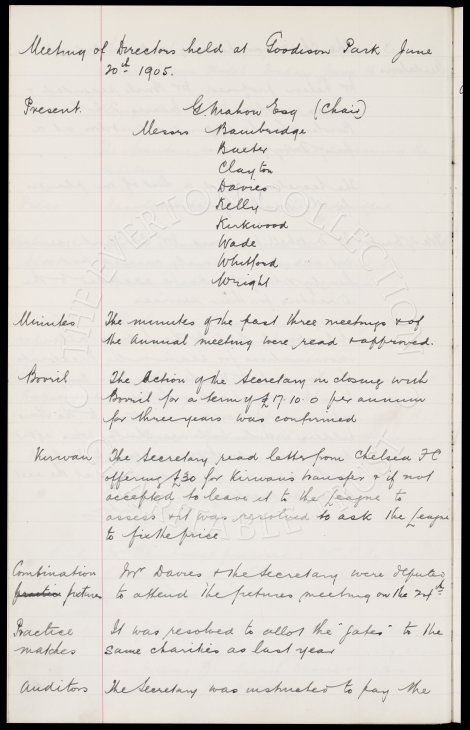 Meeting of Directors held at Goodison Park June
20th 1905.
Present. G. Mahon Esq (Chair)
Messrs Bainbridge
Baxter
Clayton
Davies
Kelly
Kirkwood
Wade
Whitford
Wright
Minutes The minutes of the past three meetings & of
the annual meeting were read & approved.
Bovril The Action of the Secretary in closing with
Bovril for a term of £17.10.0 per annum
for three years was confirmed
Kirwan The Secretary read letter from Chelsea FC
offering £30 for Kirwan's transfer & if not
accepted to leave it to the League to
assess & it was resolved to ask the League
to fix the price
Combination Mr Davies & the Secretary were deputed
practice fixtures to attend the fixtures meeting on the 24th
Practice It was resolved to allot the "gates" to the
matches same charities as last year
Auditors The Secretary was instructed to pay the
THE EVERTON COLLECTION